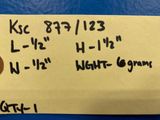 KSC 877/123
L - 1/2" H - 1 1/2"
W - 1/2" WGHT - 6 grams
QTY - 1